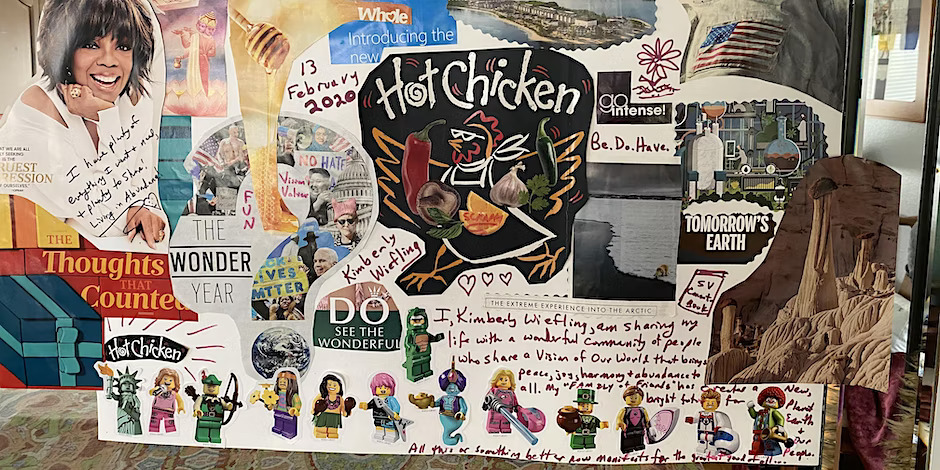 Whole
Introducing the
new
13
February
2020
Hot Chicken
go
intense!
Be. Do. Have.
I have plenty of
everything I want & need,
& plenty to share!
Living in Abundance
WHAT WE ARE ALL
SEEKING IS THE
OURSELVES."
NO HATE
Vision &
Values
FUN
THE
WONDER
YEAR
LIVES
Kimberly
Wiefling
TOMORROW'S
EARTH
THE
Thoughts
THAT
Counted
DO
SEE THE
WONDERFUL
THE EXTREME EXPERIENCE INTO THE ARCTIC
SV
Court
Book
Hot Chicken
I, Kimberly Wiefling, am sharing my
life with a wonderful Community of people
who share a Vision of Our World that brings
peace, joy, harmony & abundance to
all. My "Family of Friends" has
bright
for
create a New,
Planet
Earth
Our
People.
All this or something better now manifests for the greatest good of all...